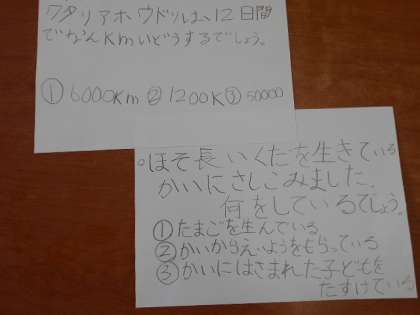 ワタリアホウドリは、12日間
でなんKmいどうするでしょう。
①6000Km ②1200K③50000
○ほそ長いくだを生きている
かいにさしこみました。
何をしているでしょう。
①たまごを生んでいる
②かいからえいようをもらっている
③かいにはさまれた子どもを
たすけている